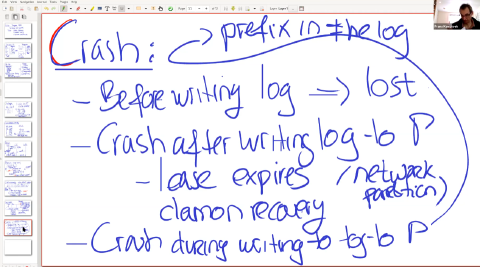 Crash: → prefix in the log
- Before writing log ⇒ lost
- Crash after writing log to P
- lease expires (network partition)
demon recovery
- Crash during writing to log to P